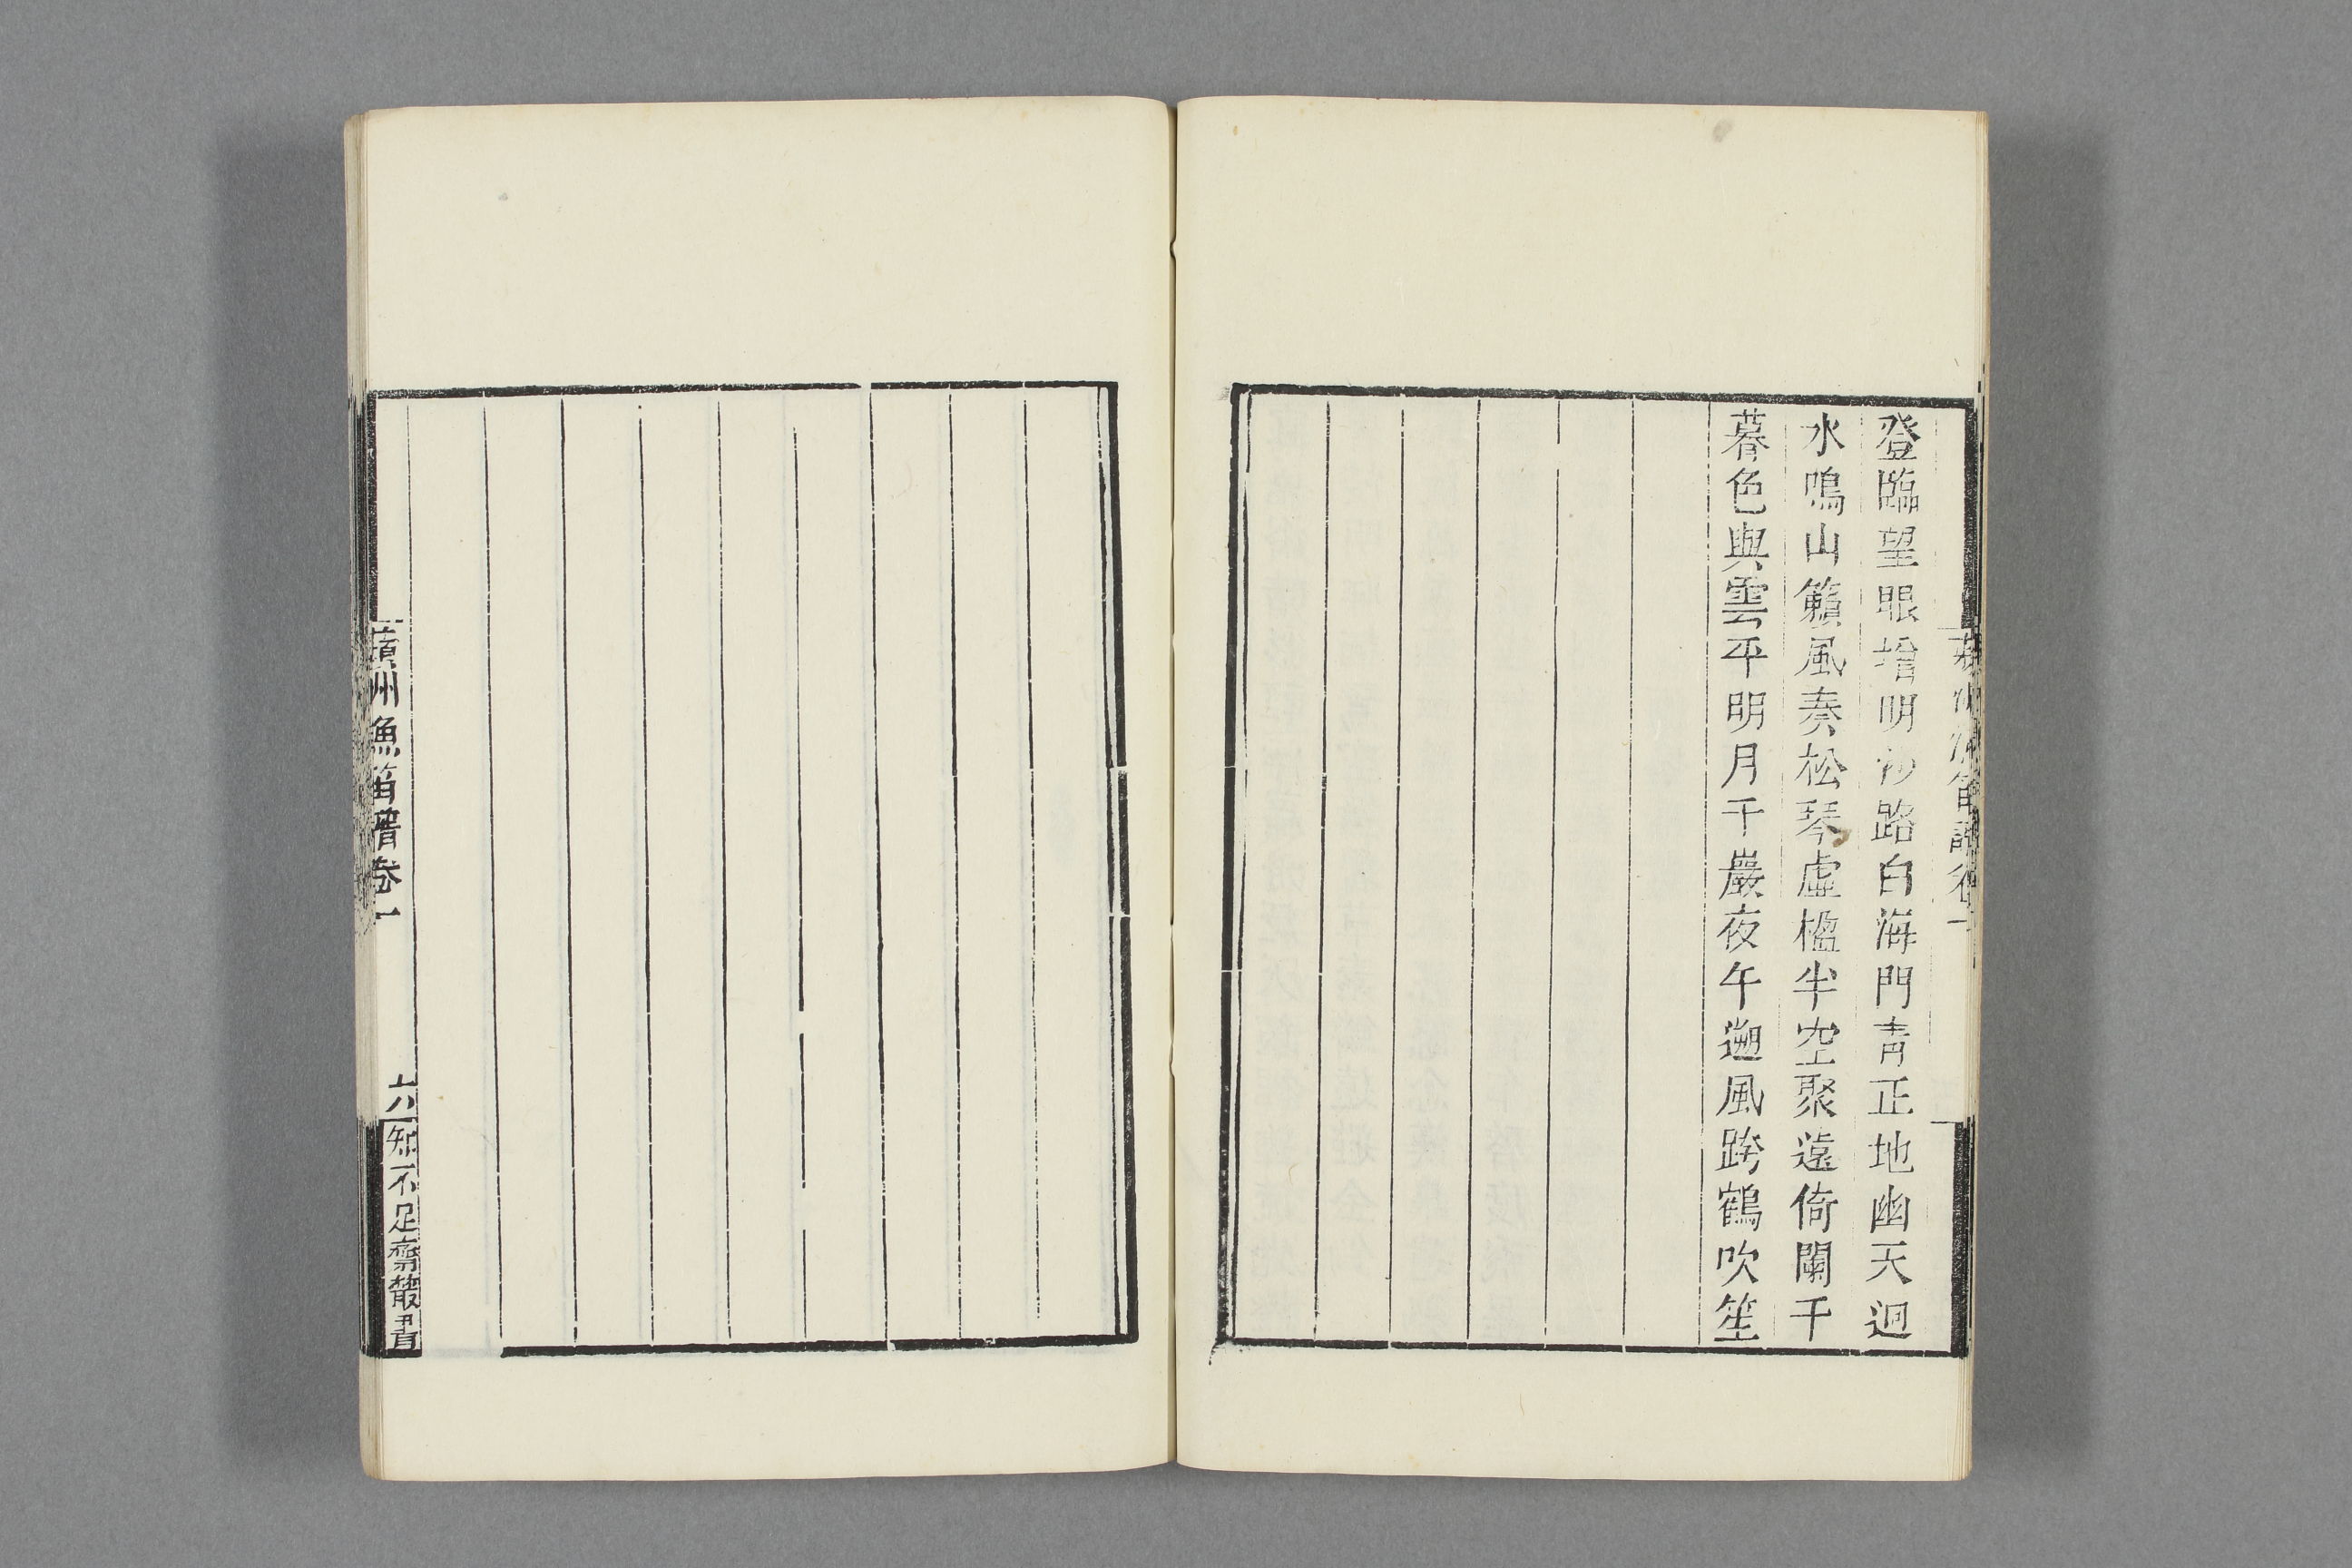 登臨望眼增明沙路白海門青正地幽天迥
水鳴山籟風奏松琴虛楹半空聚遠倚闌干
暮色與雲平明月千巖夜午遡風跨鶴吹笙
蘋洲漁笛譜卷一
蘋洲漁笛譜卷一
六
知不足齋叢書